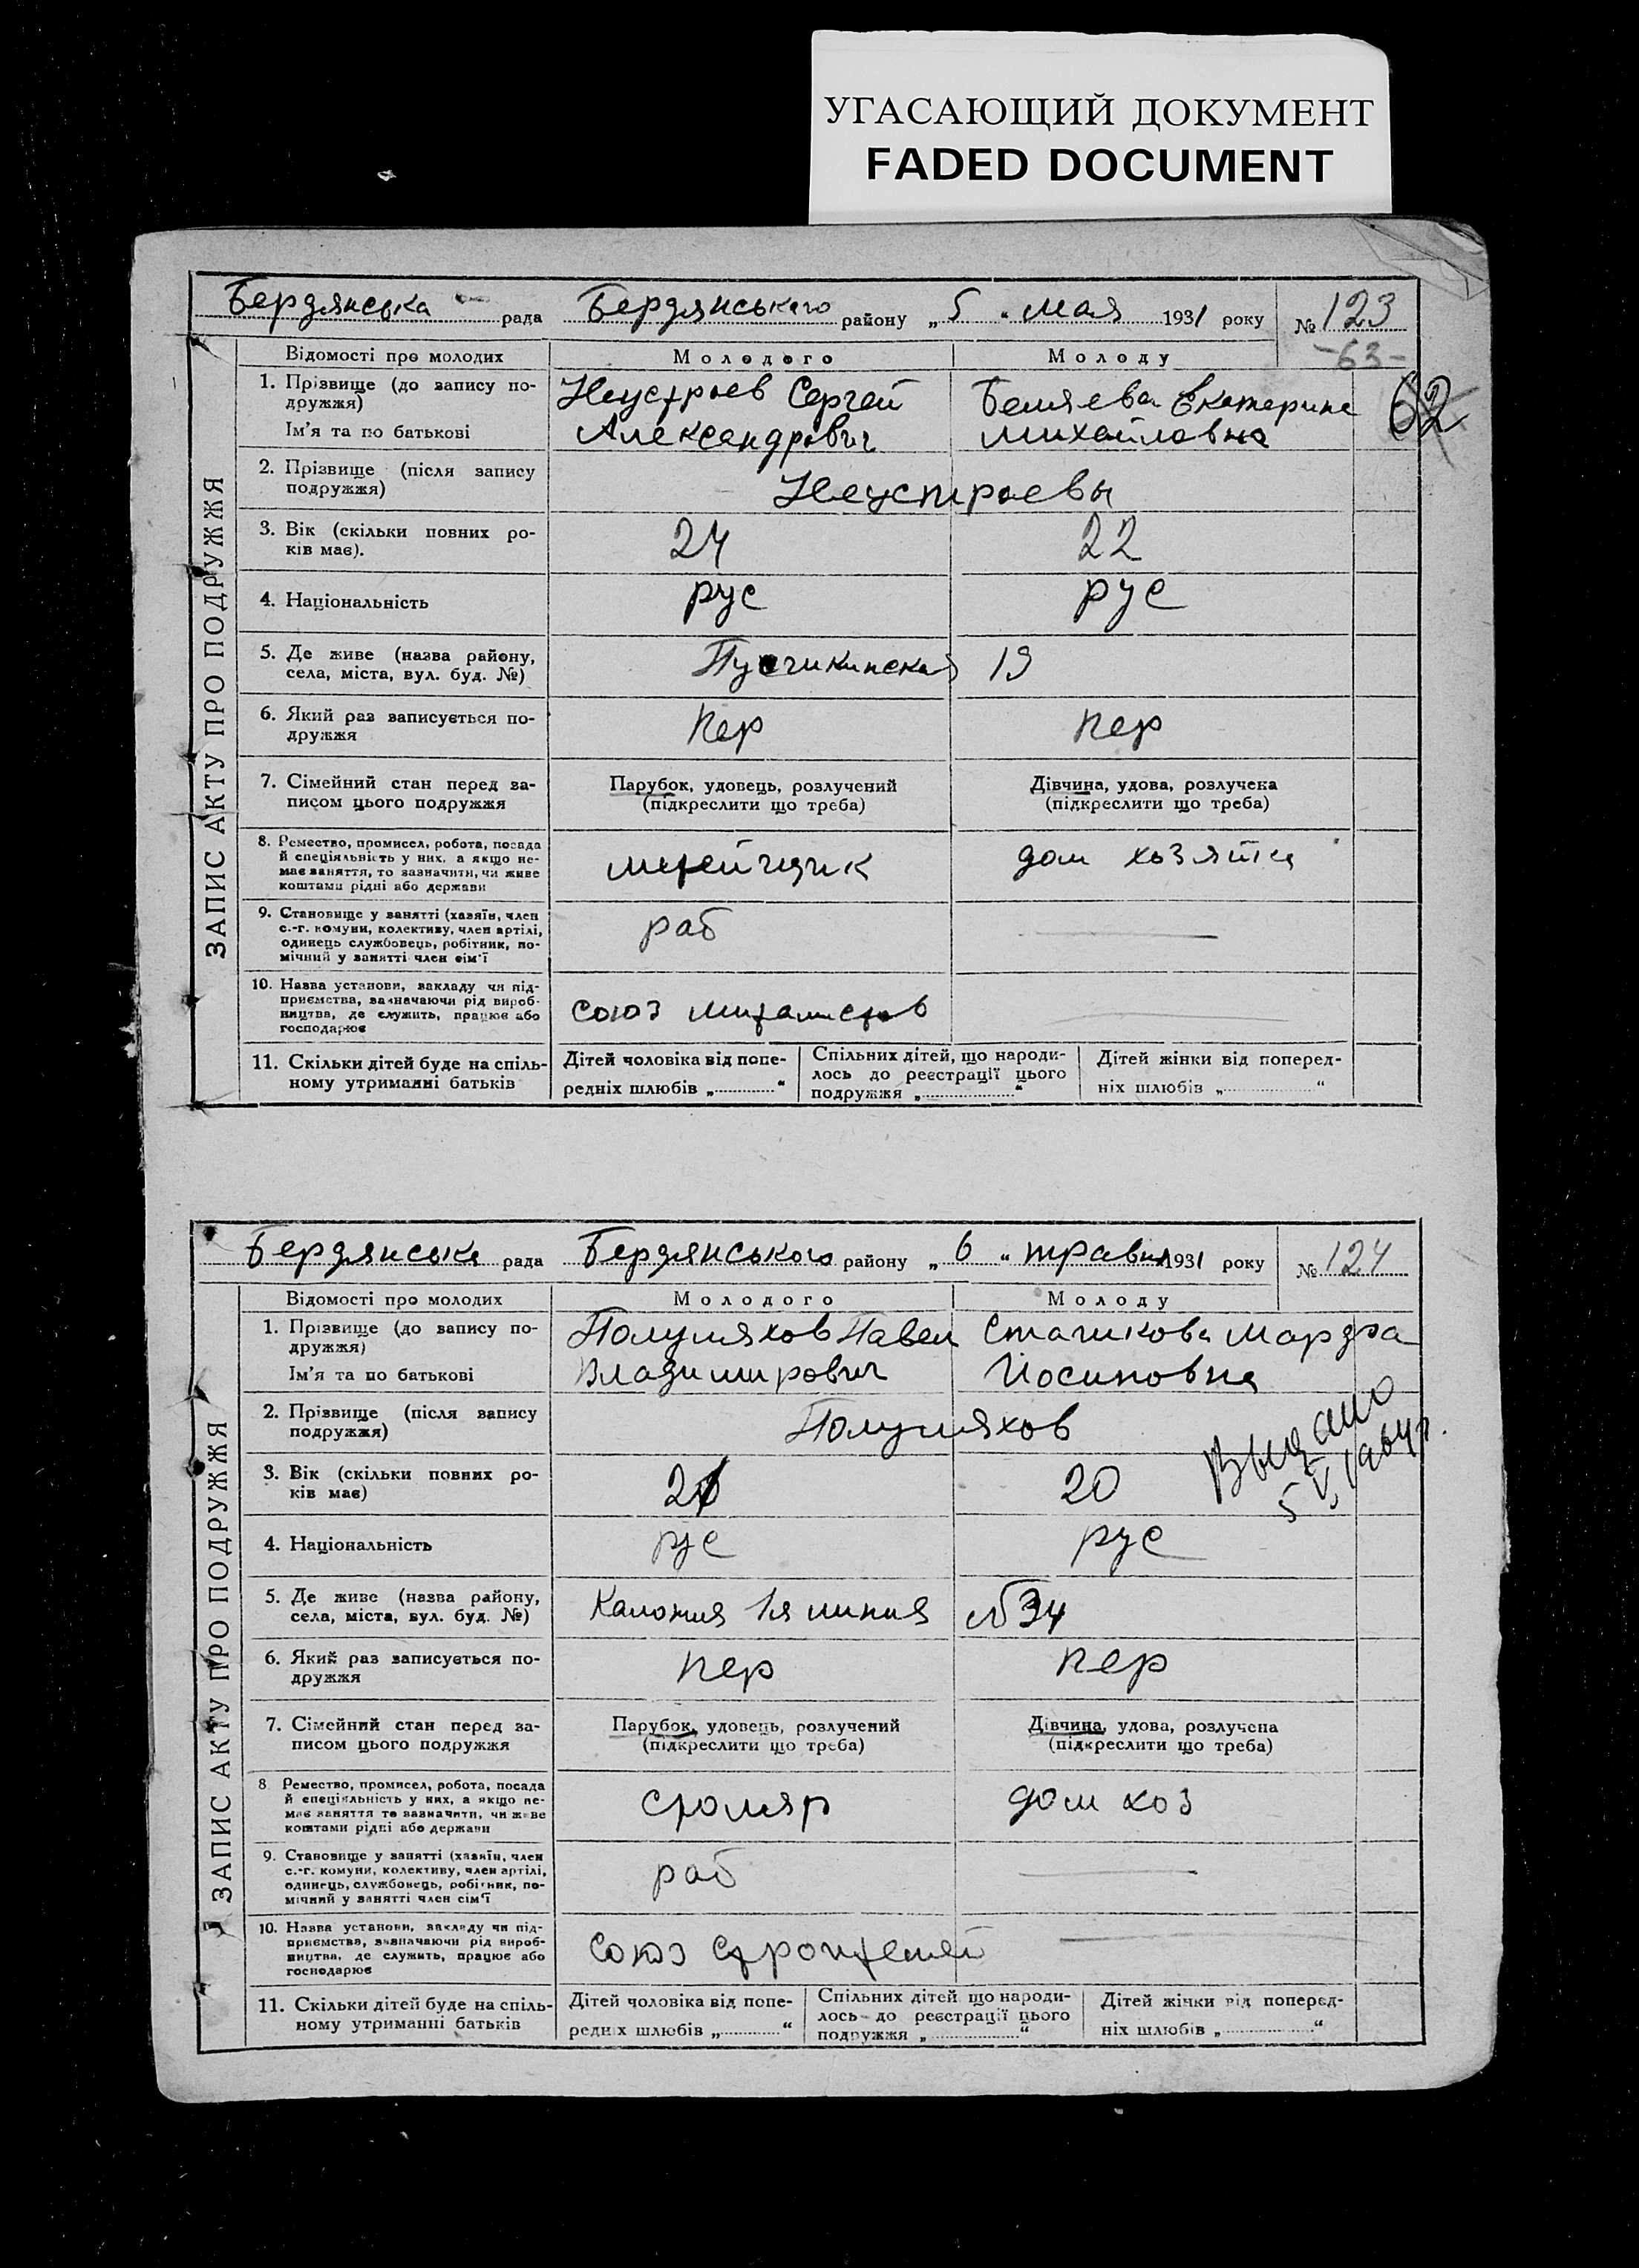 УГАСАЮЩИЙ ДОКУМЕНТ
FADED DOCUMENT
Бердянська рада Бердянського району „ 5 " мая 1931 року № 123
-63-
62
ЗАПИС АКТУ ПРО ПОДРУЖЖЯ
Відомості про молодих Молодого Молоду
1. Прізвище (до запису по-
дружжя)
Ім'я та по батькові
Неустроев Сергей
Александрович
Беляева Екатерина
Михайловна
2. Прізвище (після запису
подружжя)
Неустроевы
3. Вік (скільки повних ро-
ків має).
24 22
4. Національність рус рус
5. Де живе (назва району,
села, міста, вул. буд. №)
19
6. Який раз записується по-
дружжя
пер пер
7. Сімейний стан перед за-
писом цього подружжя
Парубок, удовець, розлучений
(підкреслити що треба)
Дівчина, удова, розлучена
(підкреслити що треба)
8. Ремество, промисел, робота, посада
й спеціяльність у них, а якщо не-
має заняття, то зазначити, чи живе
коштами рідні або держави
дом хозяйка
9. Становище у занятті (хазяїн, член
с.-г. комуни, колективу, член артілі,
одинець службовець, робітник, по-
мічний у занятті член сім'ї
раб
10. Назва установи, закладу чи під-
приємства, зазначаючи рід вироб-
ництва, де служить, працює або
господарює
союз
11. Скільки дітей буде на спіль-
ному утриманні батьків
Дітей чоловіка від попе-
редніх шлюбів „ “
Спільних дітей, що народи-
лось до реєстрації цього
подружжя „ “
Дітей жінки від поперед-
ніх шлюбів „ “
Бердянська рада Бердянського району „ 6 " травня 1931 року № 124
ЗАПИС АКТУ ПРО ПОДРУЖЖЯ
Відомості про молодих Молодого Молоду
1. Прізвище (до запису по-
дружжя)
Ім'я та по батькові
Полуляхов Павел
Владимирович
Стачикова Марфа
Иосиповна
2. Прізвище (після запису
подружжя)
Полуляхов
Выдано
5 V 1964 г.
3. Вік (скільки повних ро-
ків має)
20
4. Національність рус рус
5. Де живе (назва району,
села, міста, вул. буд. №)
Калония 1я линия №34
6. Який раз записується по-
дружжя
пер пер
7. Сімейний стан перед за-
писом цього подружжя
Парубок, удовець, розлучений
(підкреслити що треба)
Дівчина, удова, розлучена
(підкреслити що треба)
8 Ремество, промисел, робота, посада
й спеціяльність у них, а якщо не-
має заняття то зазначити, чи живе
коштами рідні або держави
столяр дом хоз
9. Становище у занятті (хазяїн, член
с.-г. комуни, колективу, член артілі,
одинець, службовець, робітник, по-
мічний у занятті член сім'ї
раб
10. Назва установи, закладу чи під-
приємства, зазначаючи рід вироб-
ництва, де служить, працює або
господарює
Союз строителей
11. Скільки дітей буде на спіль-
ному утриманні батьків
Дітей чоловіка від попе-
редніх шлюбів „ “
Спільних дітей що народи-
лось до реєстрації цього
подружжя „ “
Дітей жінки від поперед-
ніх шлюбів „ “